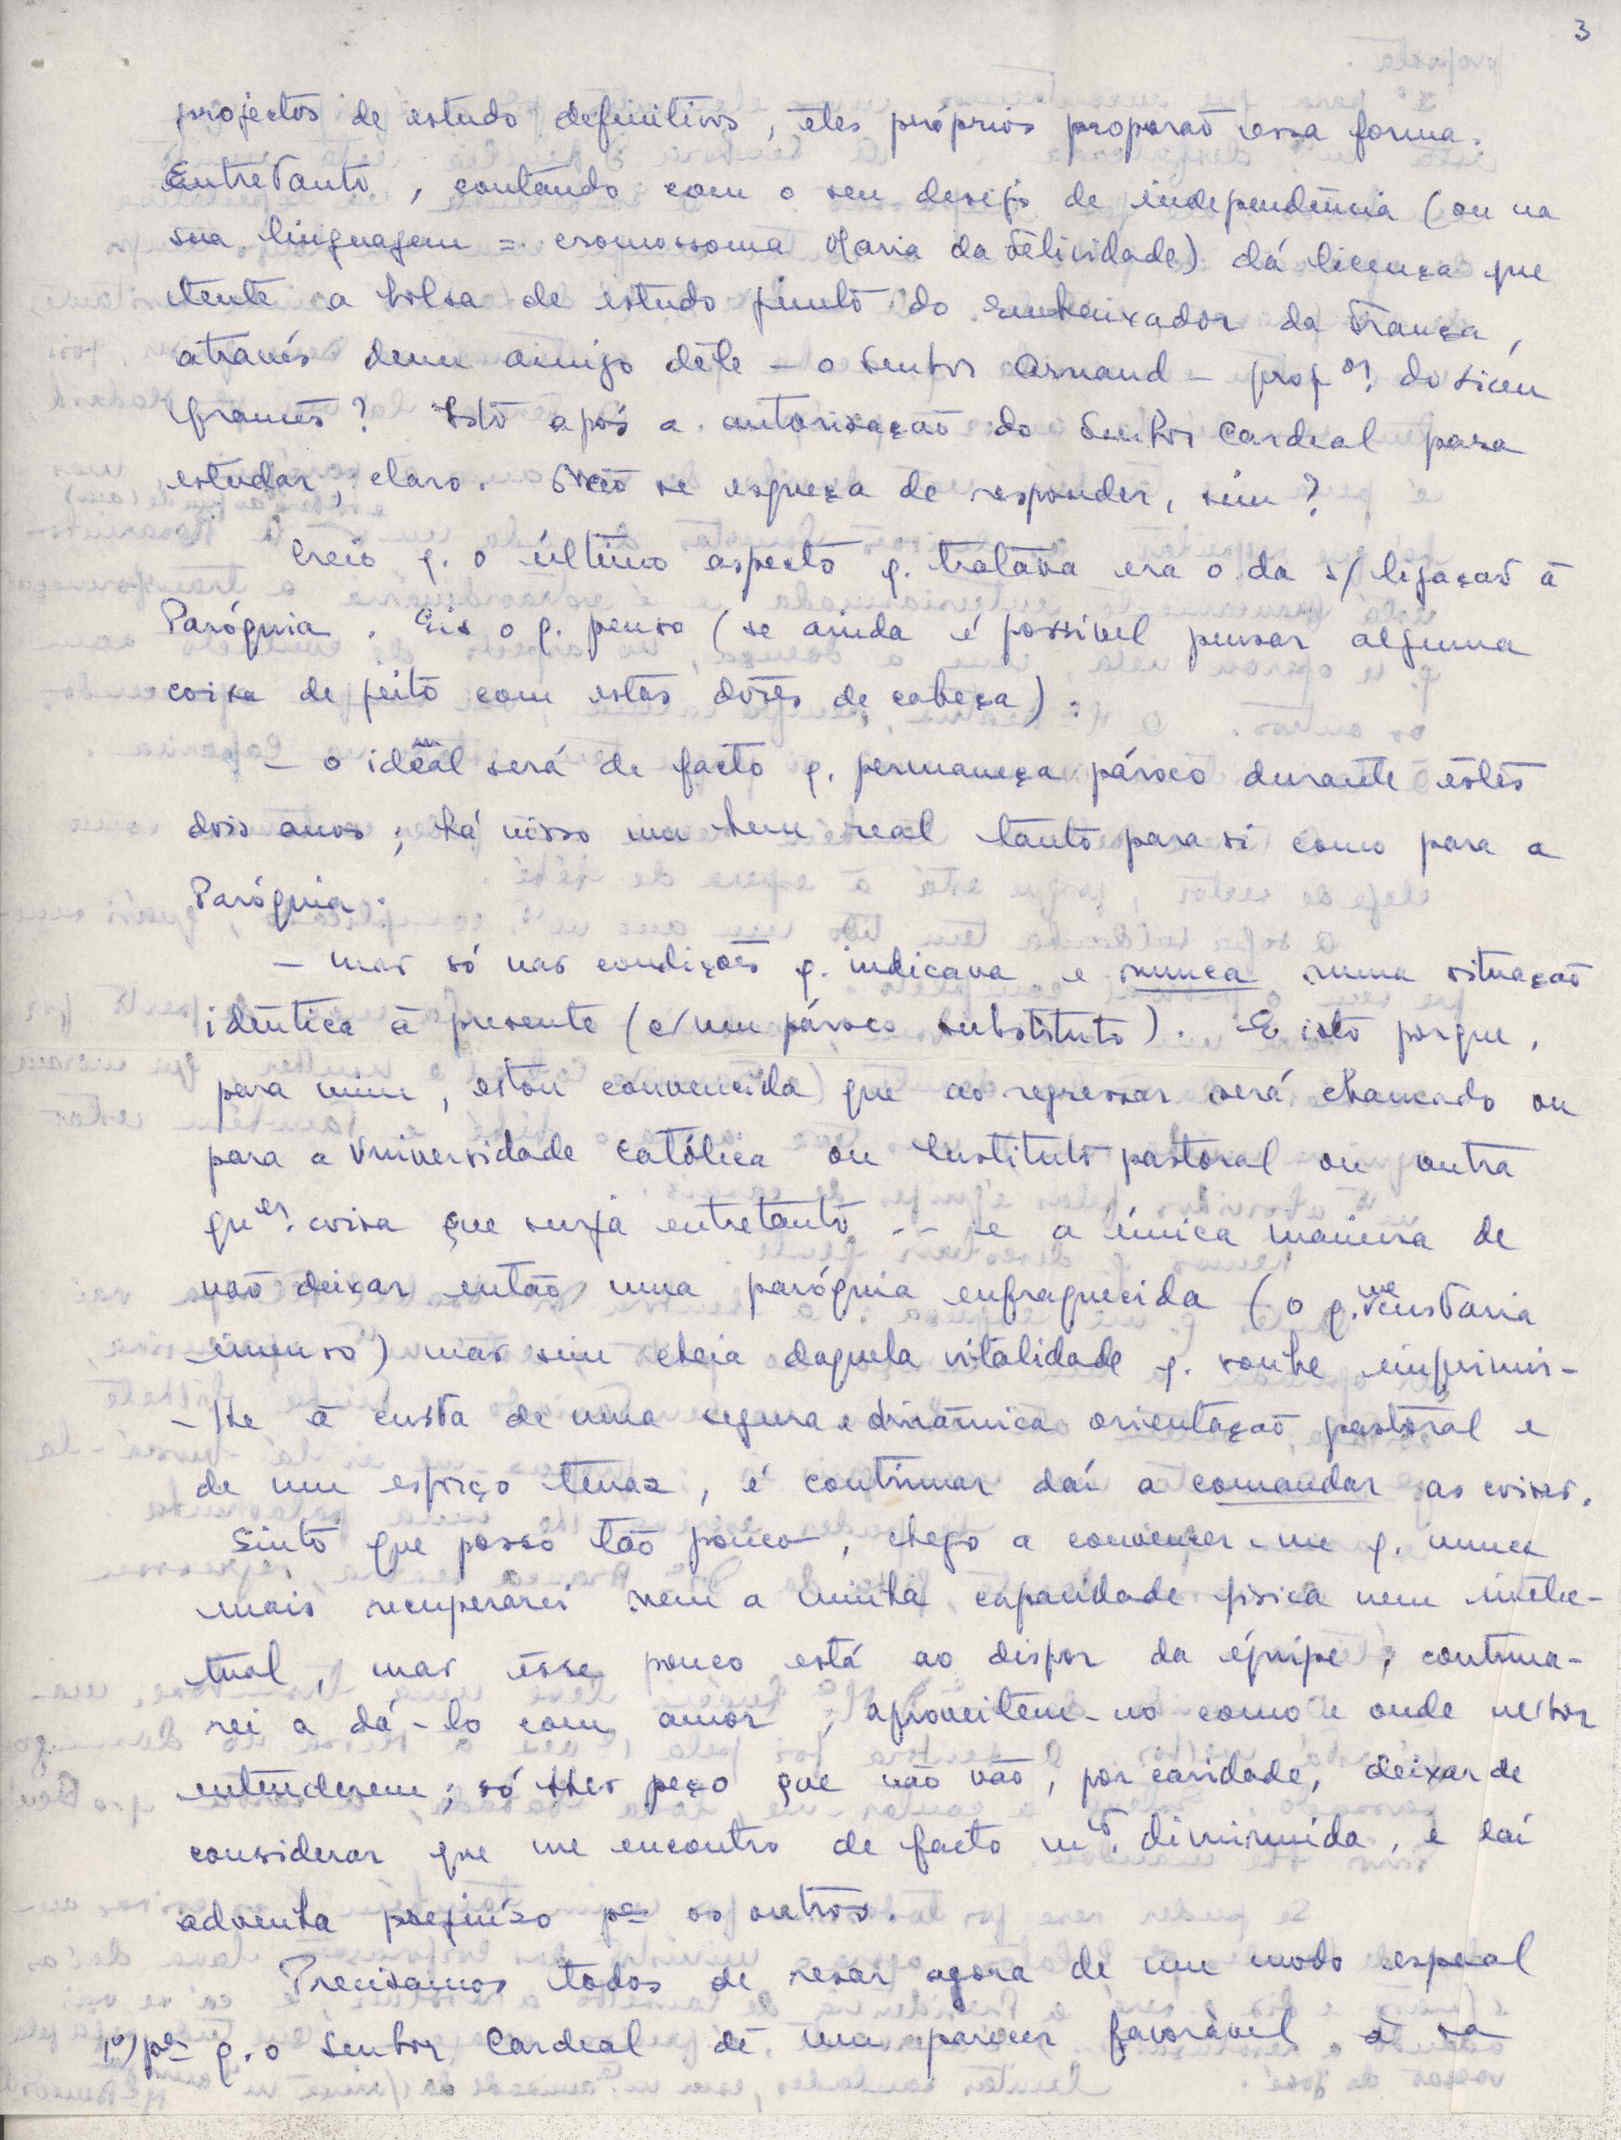 3
projectos de estudo definitivos, êles próprios proporão essa forma.
Entretanto, contando com o seu desejo de independência (ou na
sua linguagem = cromossoma Maria da Felicidade) dá licença que
tente a bolsa de estudo junto do Embaixador da França,
através dum amigo dêle - o Senhor Arnaud - prof.or do Liceu
francês? Isto após a autorização do Senhor Cardeal para
estudar, claro. Não se esqueça de responder, sim?
Creio q. o último aspecto q. tratava era o da s/ ligação à
Paróquia. Eis o q. penso (se ainda é possível pensar alguma
coisa de jeito com estas dores de cabeça):
- o ideal será de facto q. permaneça pároco durante êstes
dois anos; há nisso um bem real tanto para si como para a
Paróquia.
- mas só nas condições q. indicava e nunca numa situação
idêntica à presente (c/ um pároco substituto). E isto porque,
para mim, estou convencida que ao regressar será chamado ou
para a Universidade Católica ou Instituto pastoral ou outra
qu.er coisa que surja entretanto -- e a única maneira de
não deixar então uma paróquia enfraquecida (o q. me custaria
imenso) mas sim cheia daquela vitalidade q. soube imprimir-
-lhe à custa de uma segura e dinâmica orientação pastoral e
de um esforço tenaz, é continuar daí a comandar as coisas.
Sinto que posso tão pouco, chego a convencer-me q. nunca
mais recuperarei nem a minha capacidade física nem intelec-
tual, mas êsse pouco está ao dispor da équipe; continua-
rei a dá-lo com amor, aproveitem-no como e onde melhor
entenderem; só lhes peço que não vão, por caridade, deixar de
considerar que me encontro de facto m.to diminuída, e daí
advenha prejuízo pa os outros.
Precisamos todos de rezar agora de um modo especial
1º) pa q. o Senhor Cardeal dê um parecer favorável à sa